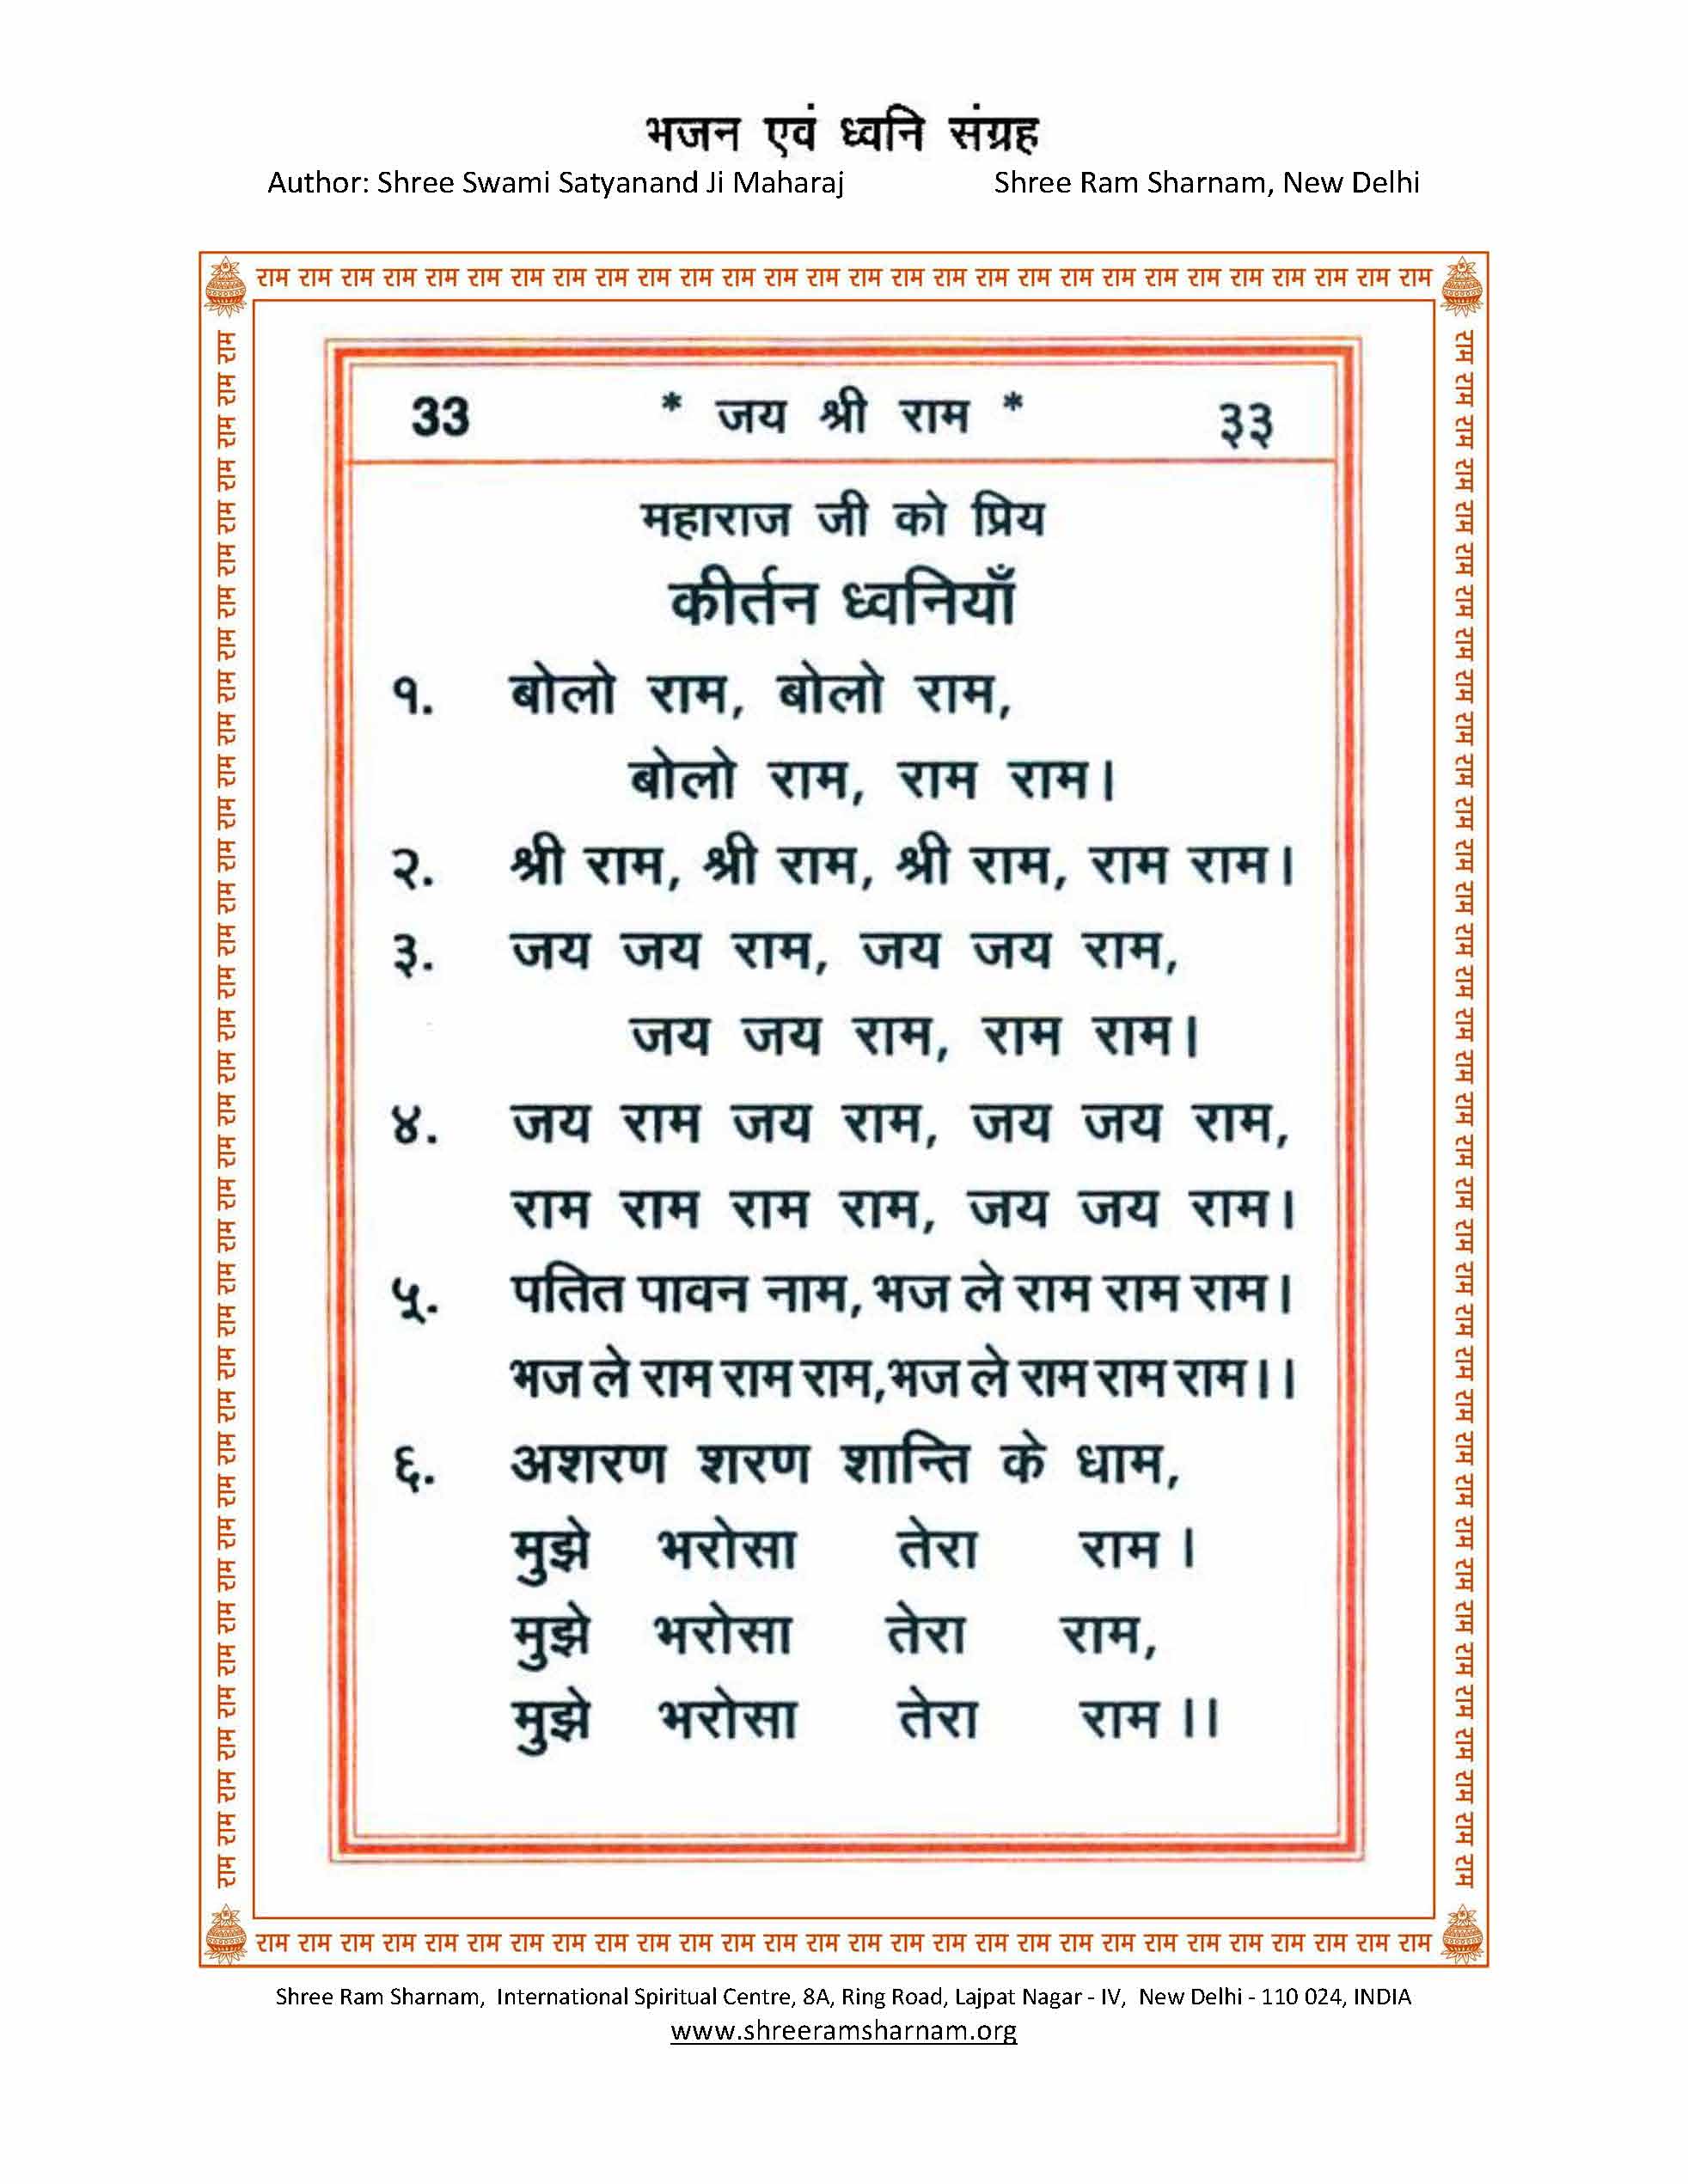 भजन एवं ध्वनि संग्रह
Author: Shree Swami Satyanand Ji Maharaj Shree Ram Sharnam, New Delhi
राम राम राम राम राम राम राम राम राम राम राम राम राम राम राम राम राम राम राम राम राम राम राम राम राम राम राम राम
33 * जय श्री राम * ३३
महाराज जी को प्रिय
कीर्तन ध्वनियाँ
१. बोलो राम, बोलो राम,
बोलो राम, राम राम।
२. श्री राम, श्री राम, श्री राम, राम राम।
३. जय जय राम, जय जय राम,
जय जय राम, राम राम।
४. जय राम जय राम, जय जय राम,
राम राम राम राम, जय जय राम।
५. पतित पावन नाम, भज ले राम राम राम।
भज ले राम राम राम, भज ले राम राम राम।।
६. अशरण शरण शान्ति के धाम,
मुझे भरोसा तेरा राम ।
मुझे भरोसा तेरा राम,
मुझे भरोसा तेरा राम ।।
राम राम राम राम राम राम राम राम राम राम राम राम राम राम राम राम राम राम राम राम राम राम राम राम राम राम राम राम राम राम राम राम राम राम राम राम राम
राम राम राम राम राम राम राम राम राम राम राम राम राम राम राम राम राम राम राम राम राम राम राम राम राम राम राम राम राम राम राम राम राम राम राम राम राम
राम राम राम राम राम राम राम राम राम राम राम राम राम राम राम राम राम राम राम राम राम राम राम राम राम राम राम राम
Shree Ram Sharnam, International Spiritual Centre, 8A, Ring Road, Lajpat Nagar - IV, New Delhi - 110 024, INDIA
www.shreeramsharnam.org